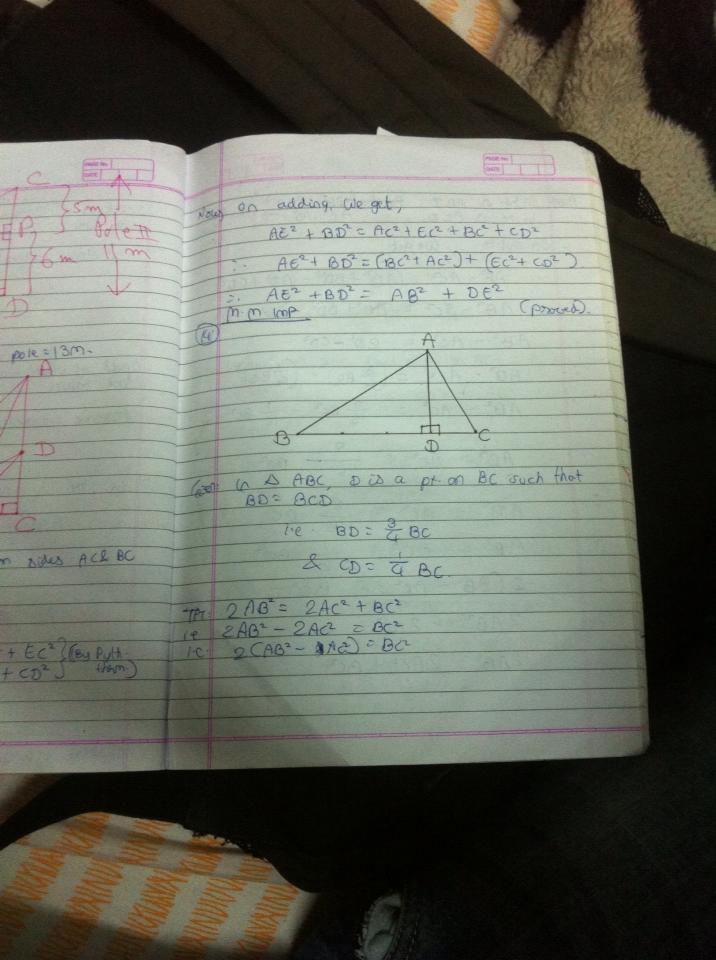 PAGE No.
DATE
C
5m
Pole II
P
6m
m
D
pole = 13m.
A
D
C
n sides AC & BC
+ EC² } (By Pyth.
+ CD² } thm.)
PAGE No.
DATE
Now, on adding, we get,
AE² + BD² = AC² + EC² + BC² + CD²
∴ AE² + BD² = (BC² + AC²) + (EC² + CD²)
∴ AE² + BD² = AB² + DE²
(proved).
M.M. IMP
A
B
D
C
Given: In △ ABC, D is a pt. on BC such that
BD = 3CD
i.e. BD = 3/4 BC
& CD = 1/4 BC.
TPT: 2AB² = 2AC² + BC²
i.e 2AB² - 2AC² = BC²
i.e. 2(AB² - AC²) = BC²